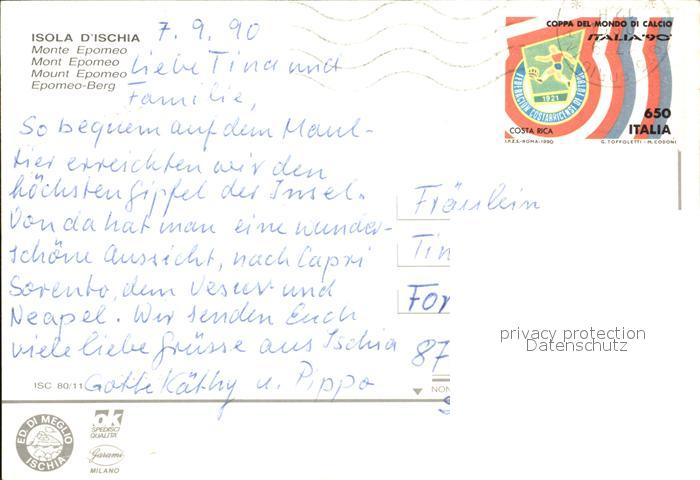 7.9.90
ISOLA D'ISCHIA
Monte Epomeo
Mont Epomeo
Mount Epomeo
Epomeo-Berg
Liebe Tina und
Familie,
So bequem auf dem Maul-
tier erreichten wir den
höchsten Gipfel der Insel.
Von da hat man eine wunder-
schöne Aussicht, nach Capri
Sorento, dem Vesuv und
Neapel. Wir senden Euch
viele liebe Grüsse aus Ischia
Gotte Käthy u. Pippo
ISC 80/11
ED. DI MEGLIO
ISCHIA
ok
SPEDISCI
QUALITÀ
Garami
MILANO
COPPA DEL MONDO DI CALCIO
ITALIA '90
FEDERACION COSTARRICENSE DE FUTBOL
1921
COSTA RICA
650
ITALIA
I.P.Z.S.-ROMA-1990
G. TOFFOLETTI - M. CODONI
Fräulein
Tin
For
87
NON
privacy protection
Datenschutz